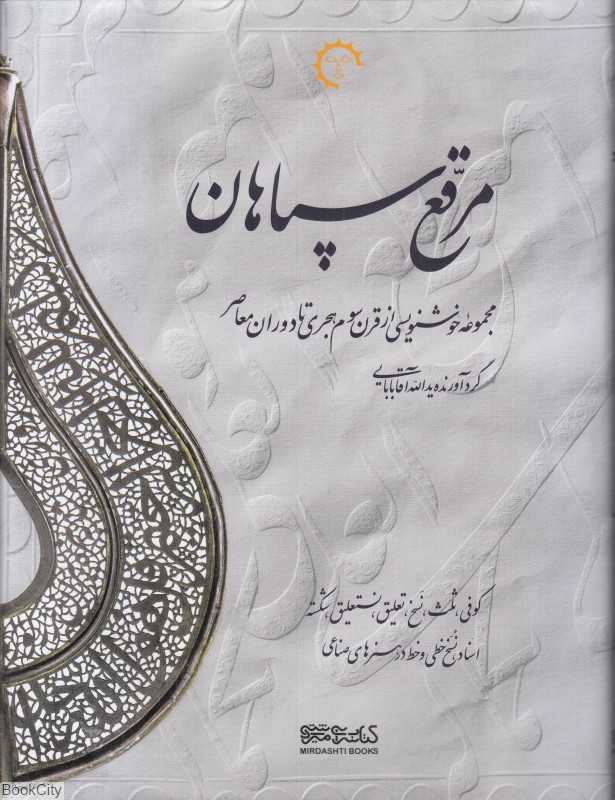 مرقّع سپاهان
مجموعهٔ خوشنویسی از قرن سوم هجری تا دوران معاصر
گردآورنده یدالله آقابابایی
کوفی، ثلث، نسخ، تعلیق، نستعلیق، شکسته
اسناد، نُسخ خطی و خط در هنرهای صناعی
کتابسرای میردشتی
MIRDASHTI BOOKS
BookCity